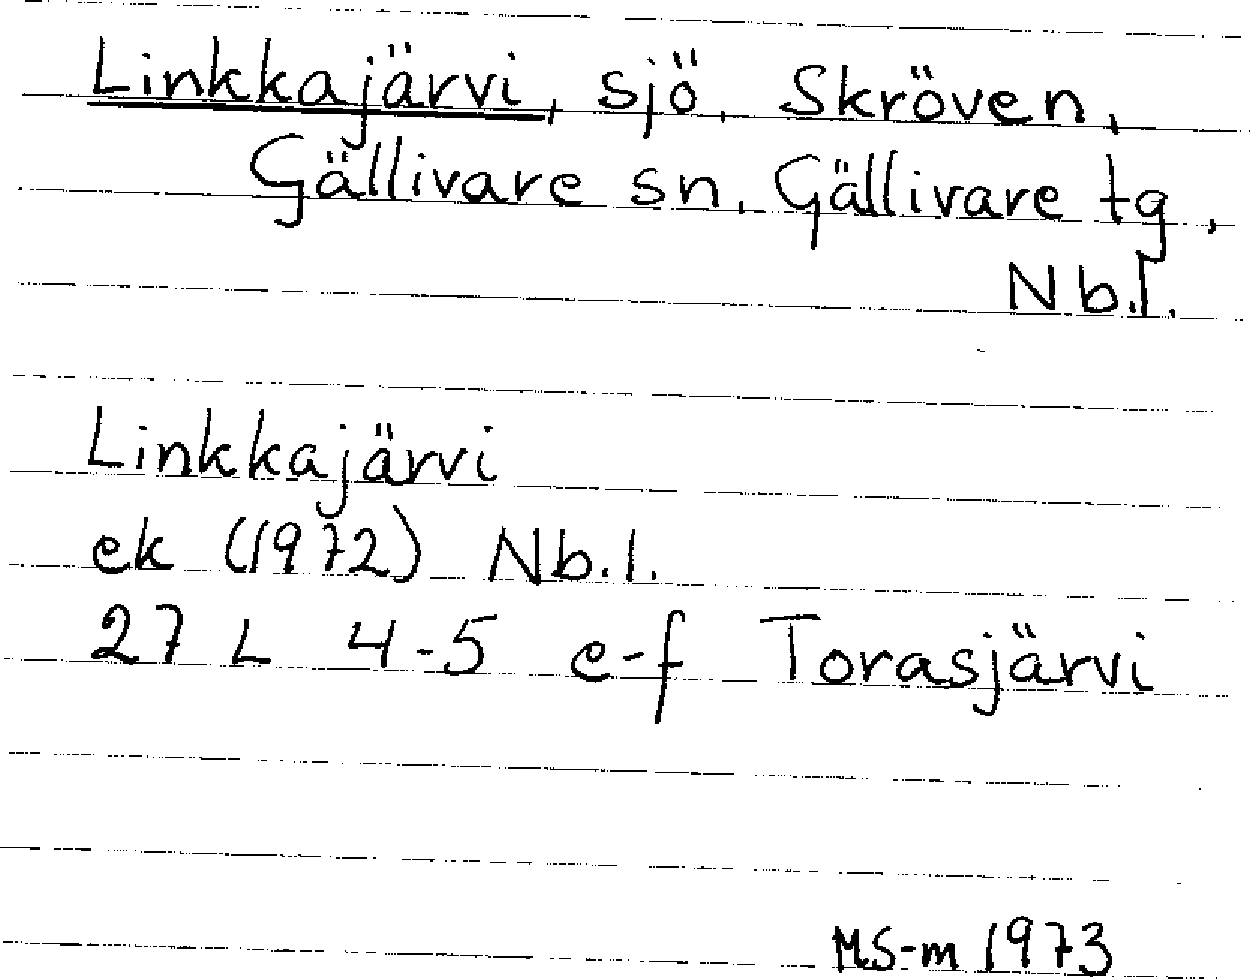 Linkkajärvi, sjö, Skröven,
Gällivare sn, Gällivare tg,
Nb.l.
Linkkajärvi
ek (1972) Nb.l.
27 L 4-5 e-f Torasjärvi
MS-m 1973